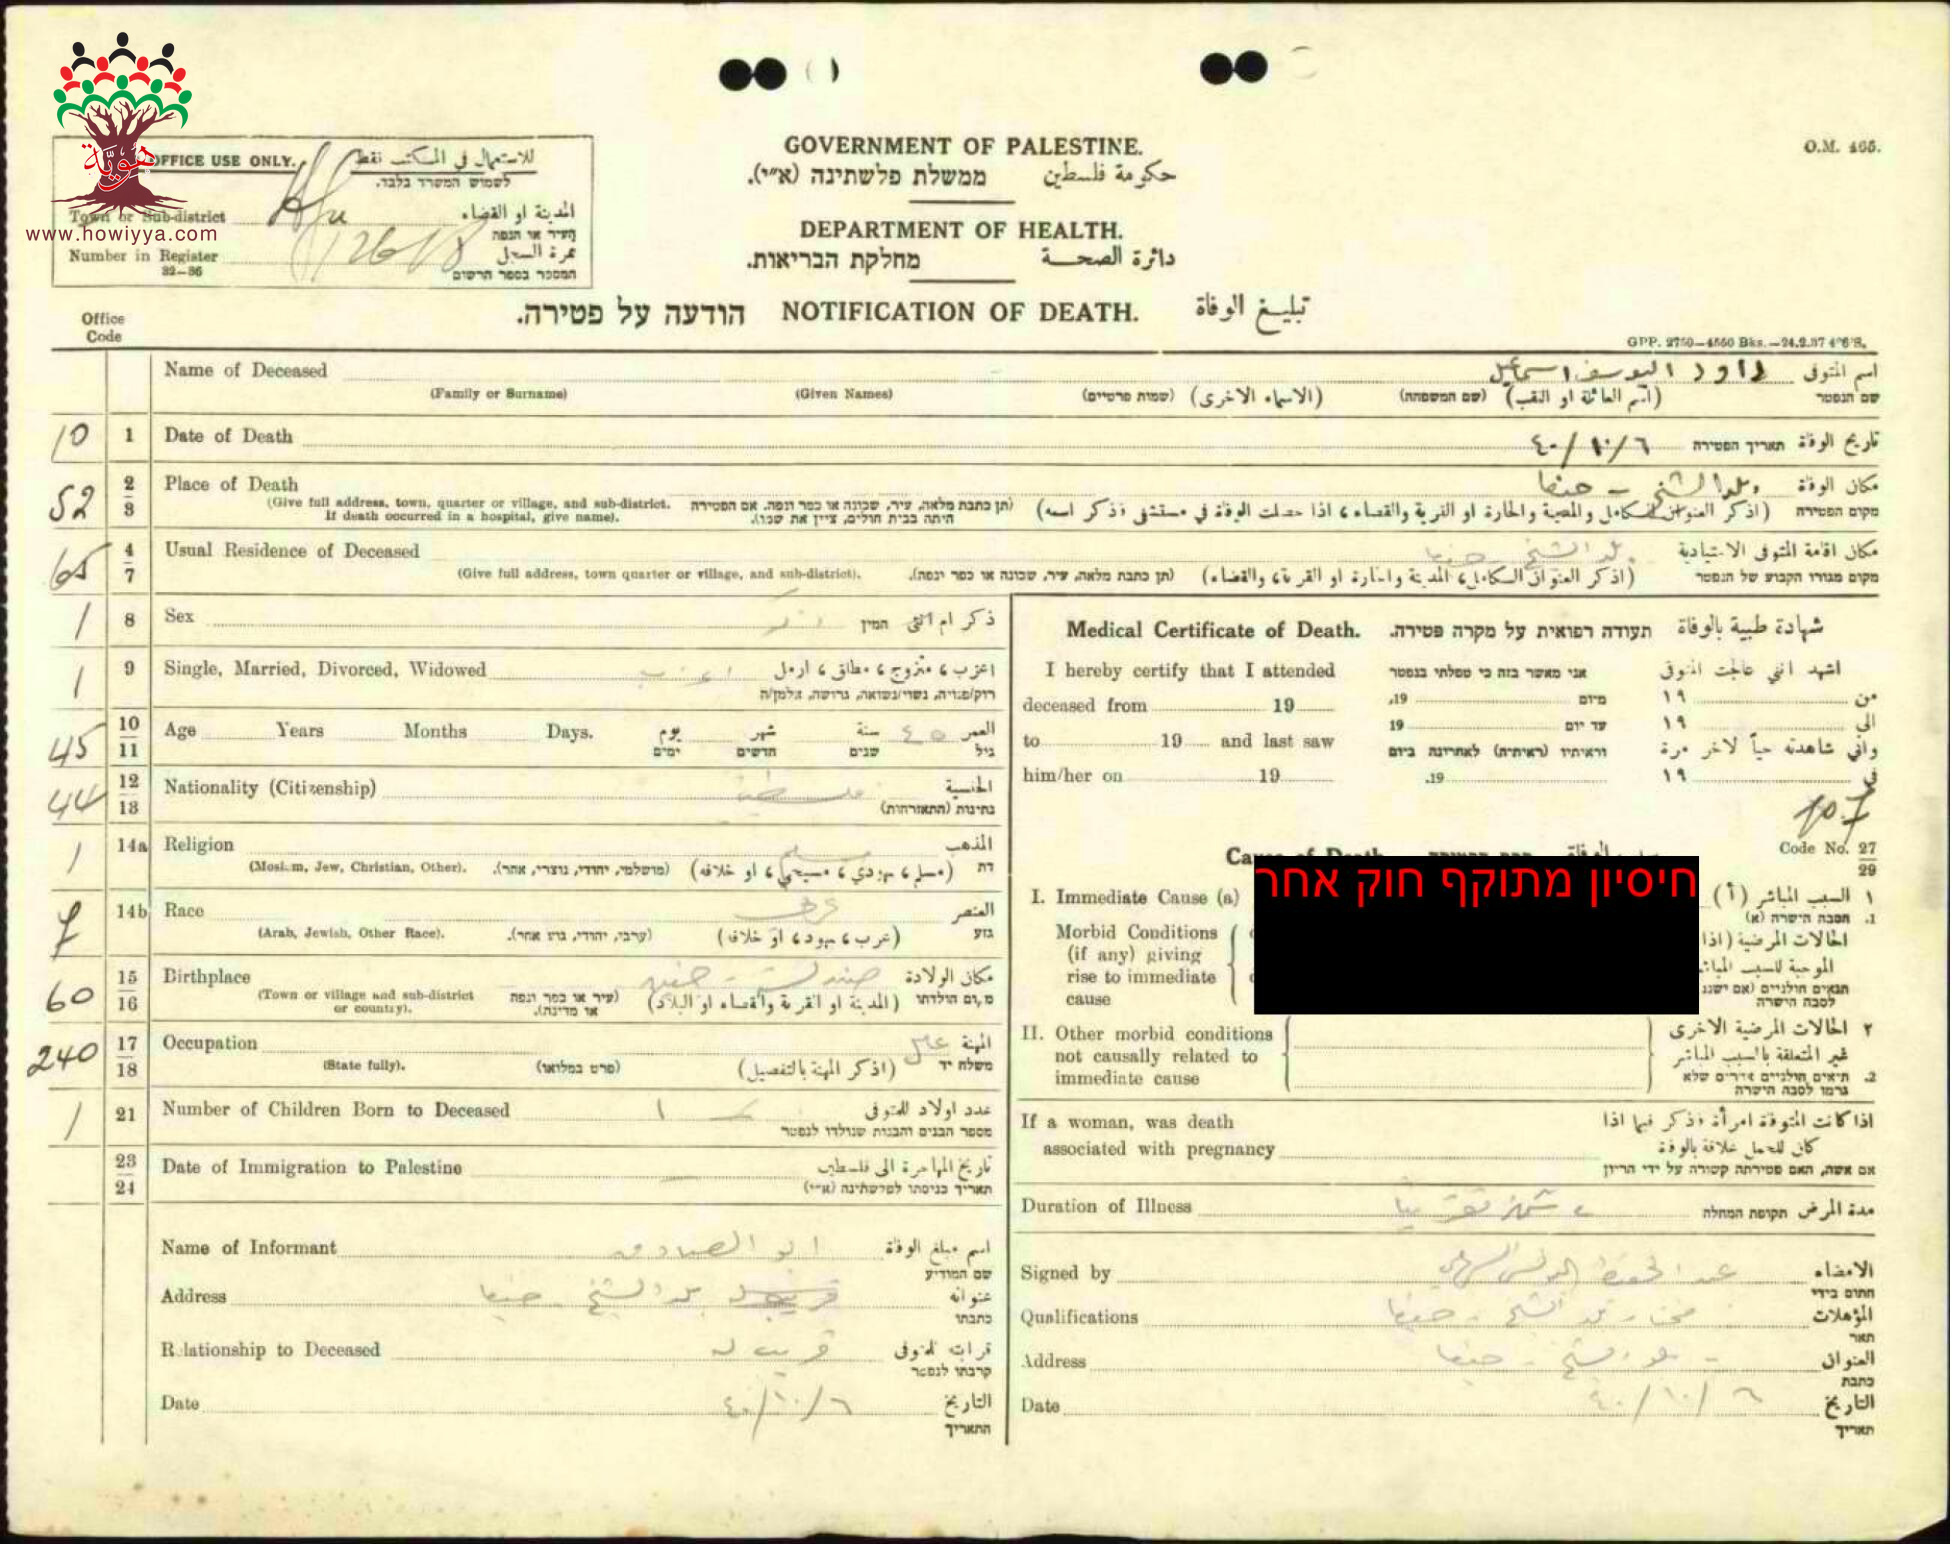 هوية
www.howiyya.com
OFFICE USE ONLY. للاستعمال في المكتب فقط
לשמוש המשרד בלבד.
Town or Sub-district المدينة او القضاء
העיר או הנפה
Number in Register نمرة السجل
32—36 המספר בספר הרשום
GOVERNMENT OF PALESTINE.
ממשלת פלשתינה (א״י). حكومة فلسطين
DEPARTMENT OF HEALTH.
מחלקת הבריאות. دائرة الصحة
O.M. 465.
הודעה על פטירה. NOTIFICATION OF DEATH. تبليغ الوفاة
Office
Code
GPP. 2750—4550 Bks.—24.2.37
Name of Deceased داود اليوسف اسماعيل اسم المتوفى
(Family or Surname) (Given Names) (שמות פרטיים) (الاسماء الاخرى) (שם המשפחה) (اسم العائلة او اللقب) שם הנפטר
10 1 Date of Death ٦/١٠/٤٠ תאריך הפטירה تاريخ الوفاة
52 2/3 Place of Death بلد الشيخ - حيفا مكان الوفاة
(Give full address, town, quarter or village, and sub-district.
If death occurred in a hospital, give name).
(תן כתבת מלאה, עיר, שכונה או כפר ונפה. אם הפטירה
היתה בבית חולים, ציין את שמו).
(اذكر العنوان الكامل والمدينة والحارة او القرية والقضاء، اذا حصلت الوفاة في مستشفى فذكر اسمه) מקום הפטירה
65 4/7 Usual Residence of Deceased بلد الشيخ حيفا مكان اقامة المتوفى الاعتيادية
(Give full address, town quarter or village, and sub-district). (תן כתבת מלאה, עיר, שכונה או כפר ונפה). (اذكر العنوان الكامل، المدينة والحارة او القرية، والقضاء) מקום מגורו הקבוע של הנפטר
1 8 Sex ذكر המין ذكر ام انثى
1 9 Single, Married, Divorced, Widowed اعزب اعزب، متزوج، مطلق، ارمل
רוק/פנויה, נשוי/נשואה, גרושה, אלמן/ה
45 10/11 Age Years Months Days. يوم شهر سنة ٤٥ العمر
ימים חדשים שנים גיל
44 12/13 Nationality (Citizenship) الجنسية
נתינות (התאזרחות)
1 14a Religion مسلم المذهب
(Moslem, Jew, Christian, Other). (מושלמי, יהודי, נוצרי, אחר). (مسلم، يهودي، مسيحي، او خلافه) דת
7 14b Race عربي العنصر
(Arab, Jewish, Other Race). (ערבי, יהודי, גזע אחר). (عرب، يهود، او خلافه) גזע
60 15/16 Birthplace مكان الولادة
(Town or village and sub-district
or country).
(עיר או כפר ונפה
או מדינה).
(المدينة او القرية والقضاء او البلاد) מקום הולדתו
240 17/18 Occupation عامل المهنة
(State fully). (פרט במלואו) (اذكر المهنة بالتفصيل) משלח יד
1 21 Number of Children Born to Deceased عدد اولاد للمتوفى
מספר הבנים והבנות שנולדו לנפטר
23/24 Date of Immigration to Palestine تاريخ المهاجرة الى فلسطين
תאריך כניסתו לפלשתינה (א״י)
Name of Informant ابو اسم مبلغ الوفاة
שם המודיע
Address بلد الشيخ حيفا عنوانه
כתבתו
Relationship to Deceased قريب له قرابته للمتوفى
קרבתו לנפטר
Date ٦/١٠/٤٠ التاريخ
התאריך
Medical Certificate of Death. תעודה רפואית על מקרה פטירה. شهادة طبية بالوفاة
I hereby certify that I attended אני מאשר בזה כי טפלתי בנפטר اشهد انني عالجت المتوفى
deceased from 19 19, מיום ١٩ من
to 19 and last saw 19 עד יום ١٩ الى
וראיתיו (ראיתיה) לאחרונה ביום واني شاهدته حياً لآخر مرة
him/her on 19 19. ١٩ في
107
Code No. 27/29
Cause of Death
חיסיון מתוקף חוק אחר
I. Immediate Cause (a) ١ السبب المباشر (أ)
1. הסבה הישרה (א)
Morbid Conditions الحالات المرضية (اذا
(if any) giving الموجبة للسبب المباشر
rise to immediate תנאים חולניים (אם ישנם
cause לסבה הישרה
II. Other morbid conditions ٢ الحالات المرضية الاخرى
not causally related to غير المتعلقة بالسبب المباشر
immediate cause 2. תנאים חולניים אחרים שלא
גרמו לסבה הישרה
If a woman, was death اذا كانت المتوفاة امرأة فذكر فيما اذا
associated with pregnancy كان للحمل علاقة بالوفاة
אם אשה, האם פטירתה קשורה על ידי הריון
Duration of Illness תקופת המחלה مدة المرض
Signed by الامضاء
חתום בידי
Qualifications مختار بلد الشيخ - حيفا المؤهلات
תאר
Address بلد الشيخ - حيفا العنوان
כתבת
Date ٦/١٠/٤٠ التاريخ
תאריך